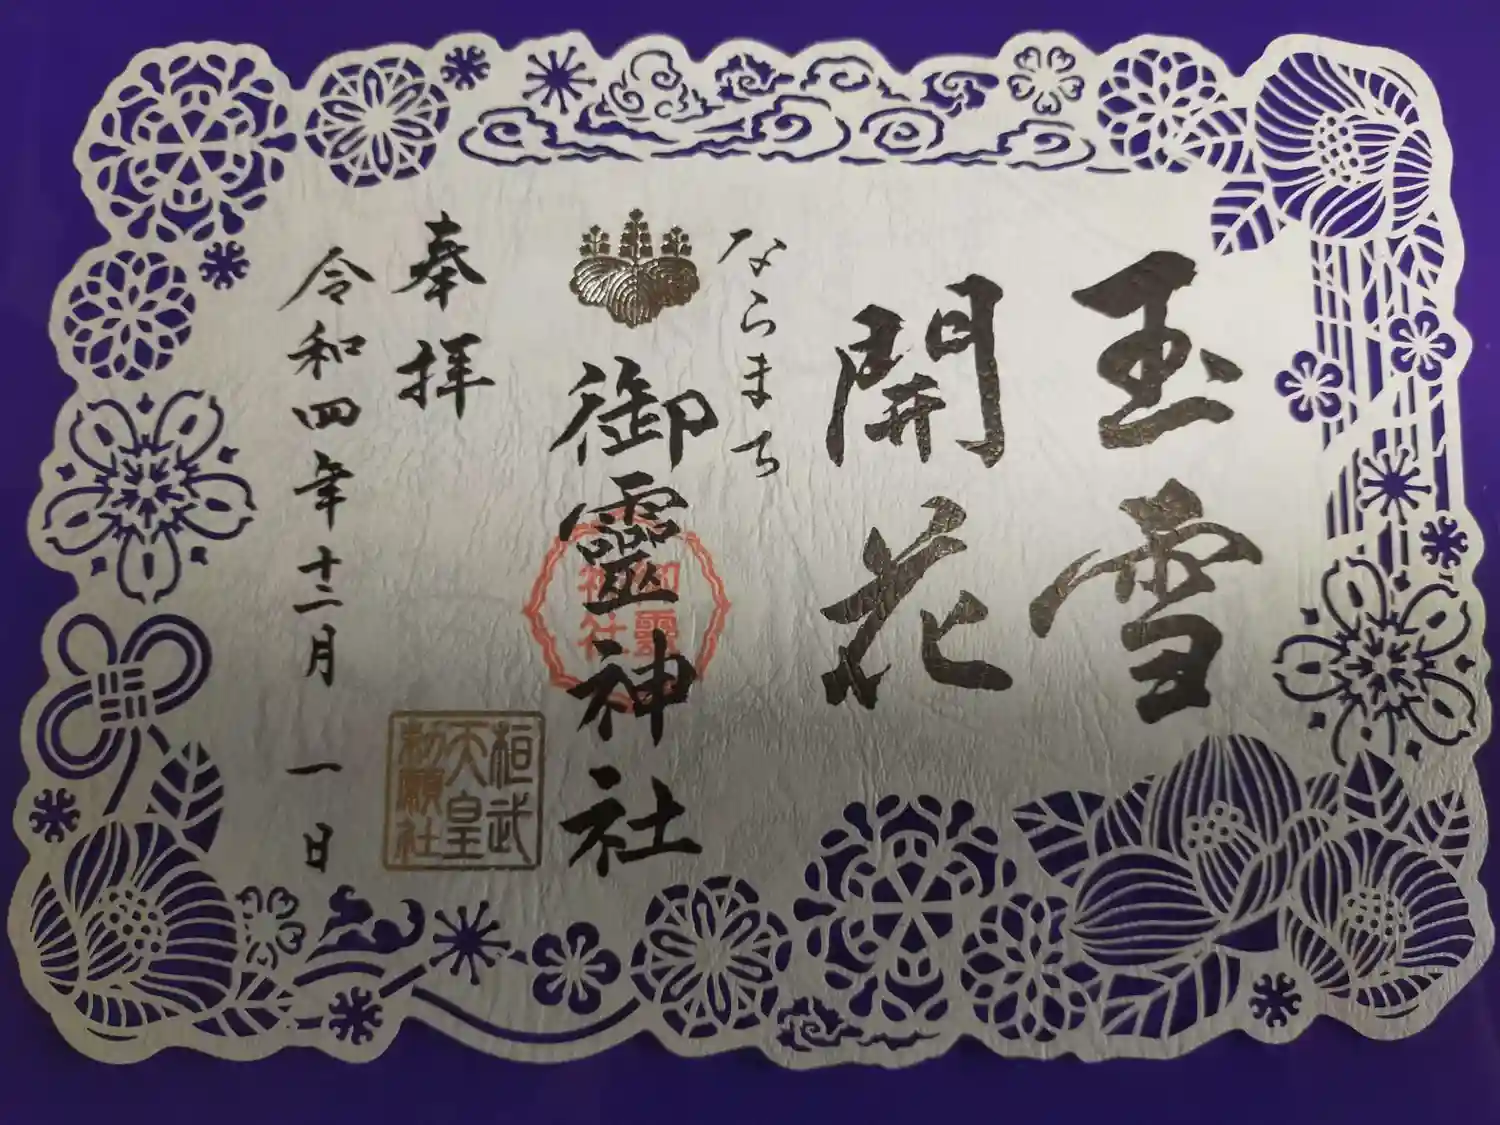 玉雪
開花
ならまち
御靈神社
御靈
神社
奉拝
桓武
天皇
勅願社
令和四年十二月一日